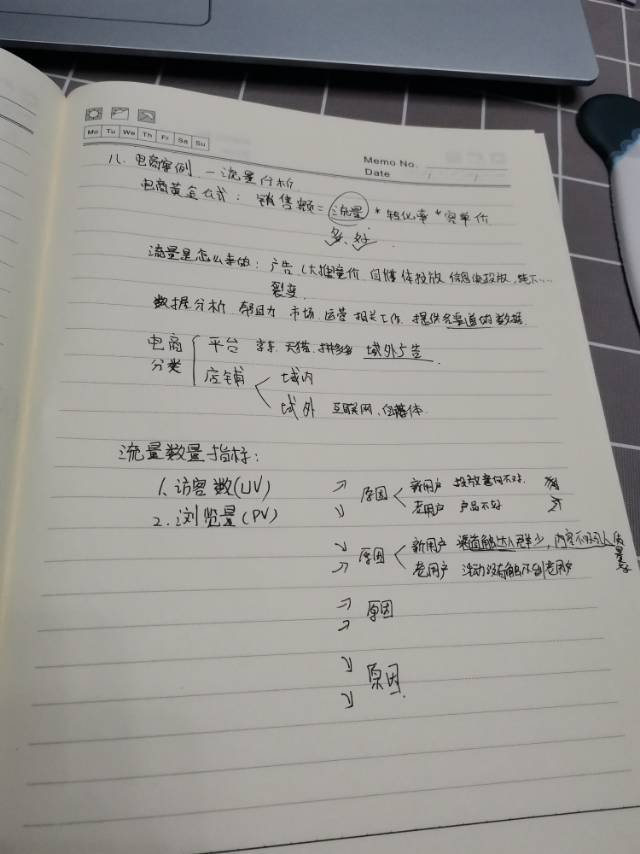 Mo Tu We Th Fr Sa Su
Memo No.
Date / /
八. 电商案例 — 流量分析
电商黄金公式: 销售额=流量*转化率*客单价
多、好
流量是怎么来的: 广告 (大搜竞价 自媒体投放 信息流投放, 线下…
裂变
数据分析 帮助力 市场 运营 相关工作 提供各渠道的数据
电商分类
平台 京东 天猫 拼多多 域外广告
店铺
域内
域外 互联网, 自媒体
流量数量指标:
1. 访客数(UV)
2. 浏览量(PV)
↗ ↘ 原因
新用户 投放意向不对
老用户 产品不好
↘ ↗ 原因
新用户 渠道触达人群少, 内容不吸引人 质量
老用户 活动没有触达到老用户
↗ ↗ 原因
↘ ↘ 原因